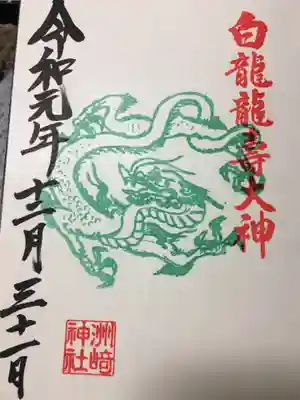 白龍龍壽大神
令和元年十二月三十一日
洲﨑
神社